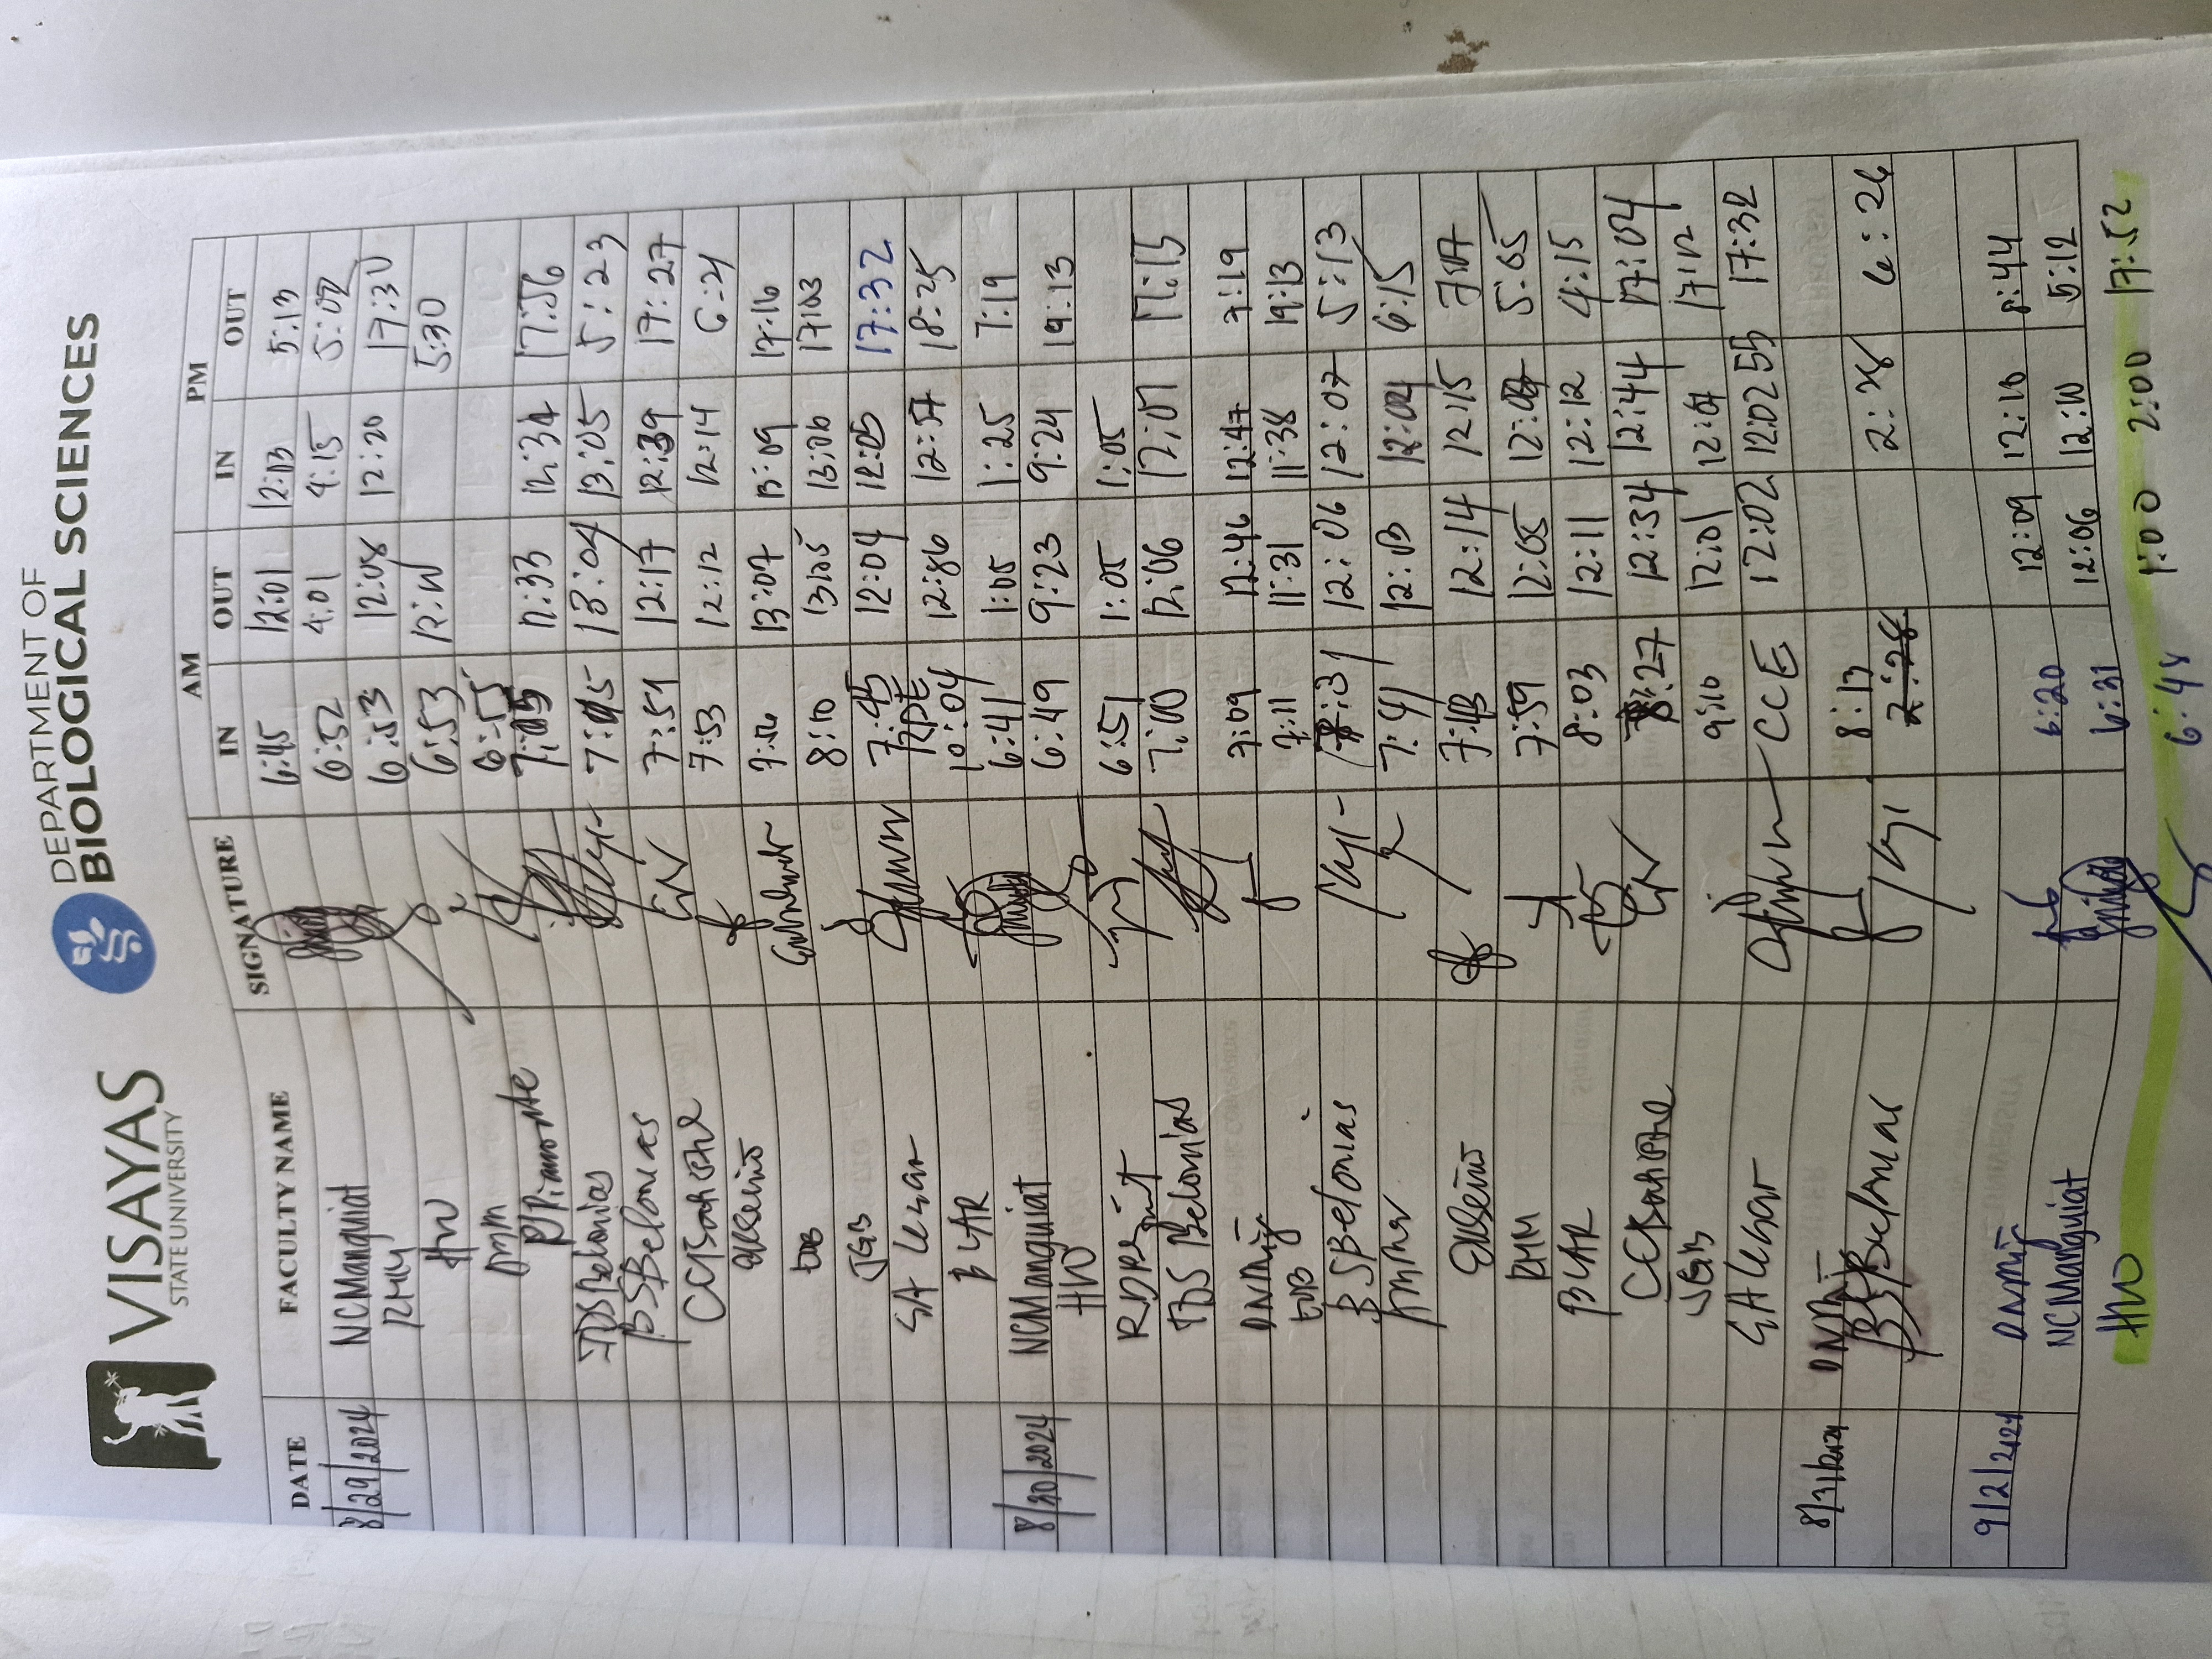 VISAYAS
STATE UNIVERSITY
DEPARTMENT OF
BIOLOGICAL SCIENCES
DATE FACULTY NAME SIGNATURE AM PM
IN OUT IN OUT
8/29/2024 NCManguiat 6:45 12:01 12:03 5:13
6:52 4:01 4:15 5:02
HW 6:53 12:08 12:20 17:30
6:53 5:30
6:55
7:05 12:33 12:34 17:56
BSBelonias 7:45 13:04 13:05 5:23
7:51 12:17 12:39 17:27
7:53 12:12 12:14 6:21
EDB 7:56 13:07 13:09 17:16
JGB 8:10 13:05 13:06 17:03
7:45 12:04 12:05 17:32
BLAR 10:04 12:56 12:57 18:25
8/30/2024 NCManguiat 6:41 1:05 1:25 7:19
HW 6:49 9:23 9:24 19:13
6:51 1:05 1:05
TDS Belonias 7:00 12:06 12:07 17:15
7:09 12:46 12:47 7:19
EDB 7:11 11:31 11:38 19:13
BSBelonias 7:31 12:06 12:07 5:13
7:41 12:03 12:04 6:15
7:43 12:14 12:15
RMM 7:59 12:05 5:05
BLAR 8:03 12:11 12:12 4:15
8:27 12:34 12:44 17:04
JGB 9:10 12:01 12:02 17:12
CCE 12:02 12:02 17:32
8/31/2024 8:13
BSBelonias 2:28 2:28 6:26
9/2/2024 6:20 12:09 12:10 8:44
NCManguiat 6:31 12:06 12:10 5:12
HW 6:48 1:00 2:00 17:52